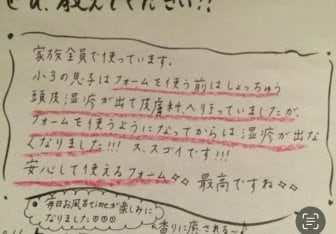 ぜひ、教えてください!!
家族全員で使っています。
小3の息子はフォームを使う前はしょっちゅう
頭皮湿疹が出て皮膚科へ行っていましたが、
フォームを使うようになってからは湿疹が出な
くなりました!!! ス、スゴイです!!!
安心して使えるフォーム✧✧ 最高ですね✧✧
毎日お風呂timeが楽しみに
なりました
香りに癒される〜